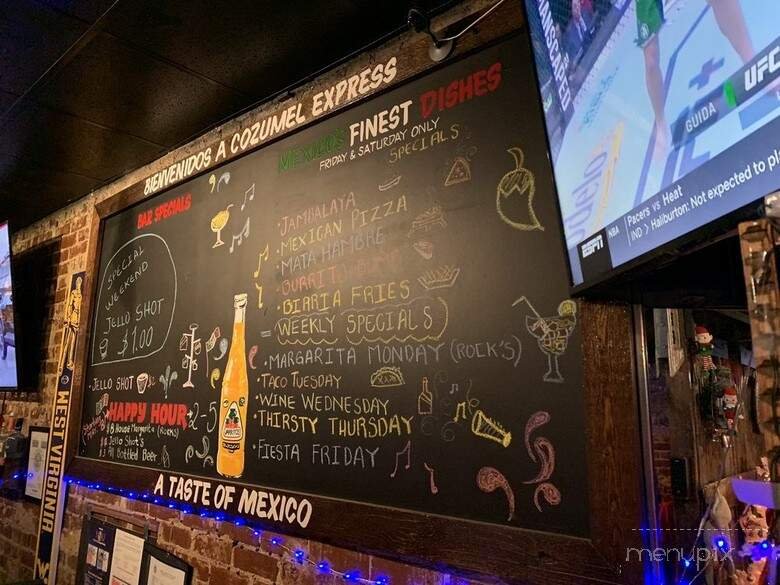 BIENVENIDOS A COZUMEL EXPRESS
MEXICO'S FINEST DISHES
FRIDAY & SATURDAY ONLY
SPECIALS
BAR SPECIALS
SPECIAL
WEEKEND
JELLO SHOT
$1.00
JELLO SHOT
HAPPY HOUR 2-5
House Margarita (ROCKS)
Jello Shot's
All Bottled Beer
JAMBALAYA
MEXICAN PIZZA
MATA HAMBRE
BURRITO
BIRRIA FRIES
WEEKLY SPECIALS
MARGARITA MONDAY (ROCK'S)
TACO TUESDAY
WINE WEDNESDAY
THIRSTY THURSDAY
FIESTA FRIDAY
A TASTE OF MEXICO
WEST VIRGINIA
GUIDA
UFC
ESPN
NBA
Pacers vs Heat
IND > Haliburton: Not expected to pl
menupix